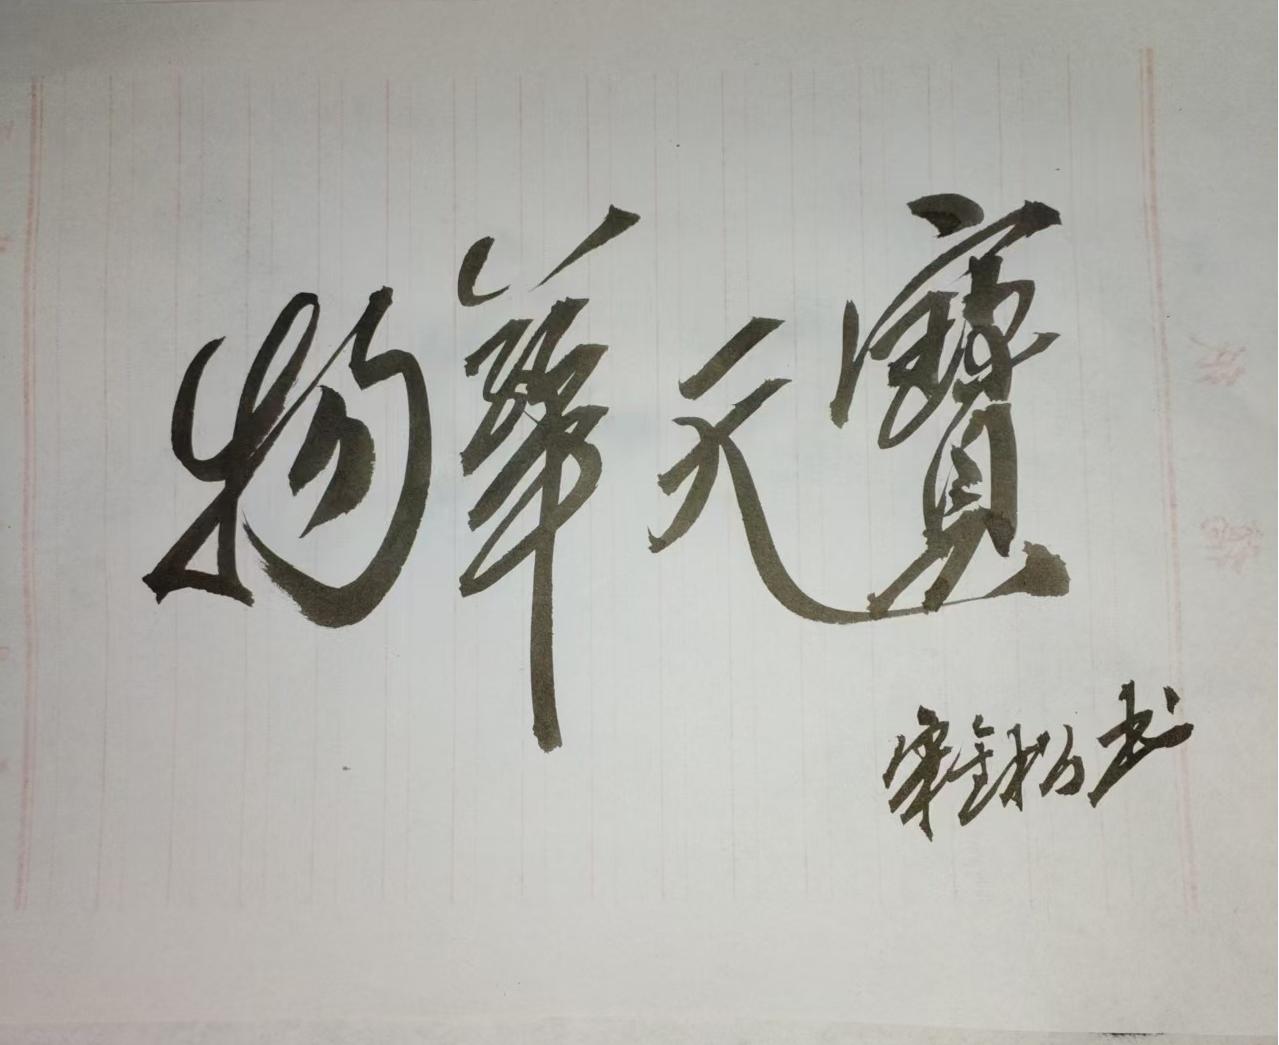 物華天寶
宋金松书